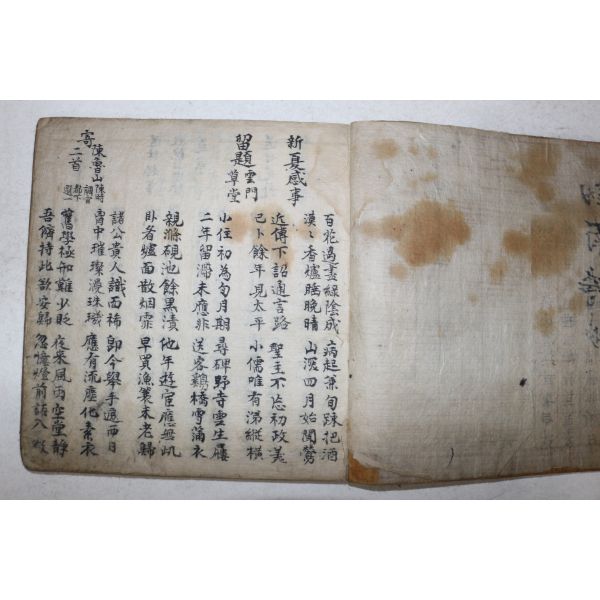 新夏感事
百花過盡綠陰成 病起兼旬踈把酒
漠〻香爐睡晚晴 山深四月始聞鶯
近傳下詔通言路 聖主不忘初政美
已卜餘年見太平 小儒唯有涕縱橫
留題雲門草堂
小住初為旬月期 尋碑野寺雲生屨
二年留滯未應非 送客溪橋雪滿衣
親滌硯池餘黑漬 他年遊宦應無此
臥看爐面散烟霏 早買漁蓑未老歸
寄陳魯山二首 陳時祠官都下 選一
諸公貴人識面稀 即今舉手遮西日
胷中璀璨漫珠璣 應有流塵化素衣
舊學極知難少貶 夜來風雨空堂靜
吾儕持此欲安歸 忽憶燈前話入微